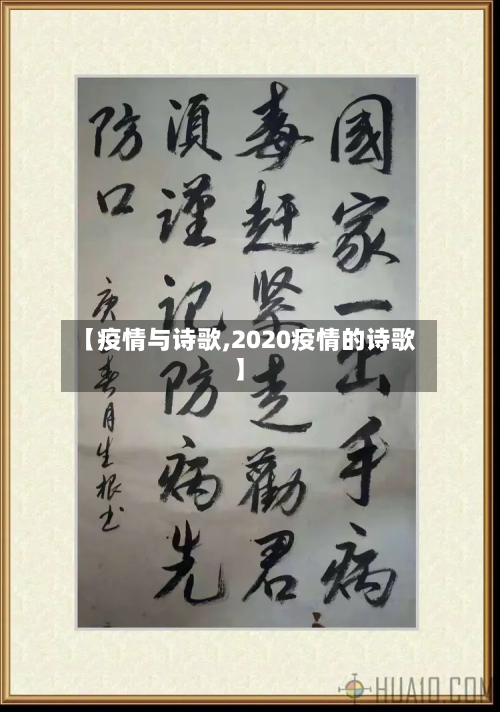 國家一出手病
毒赶紧走勸君
須謹記防病先
防口
庚春月生根书
【疫情与诗歌,2020疫情的诗歌
】
HUA10.COM